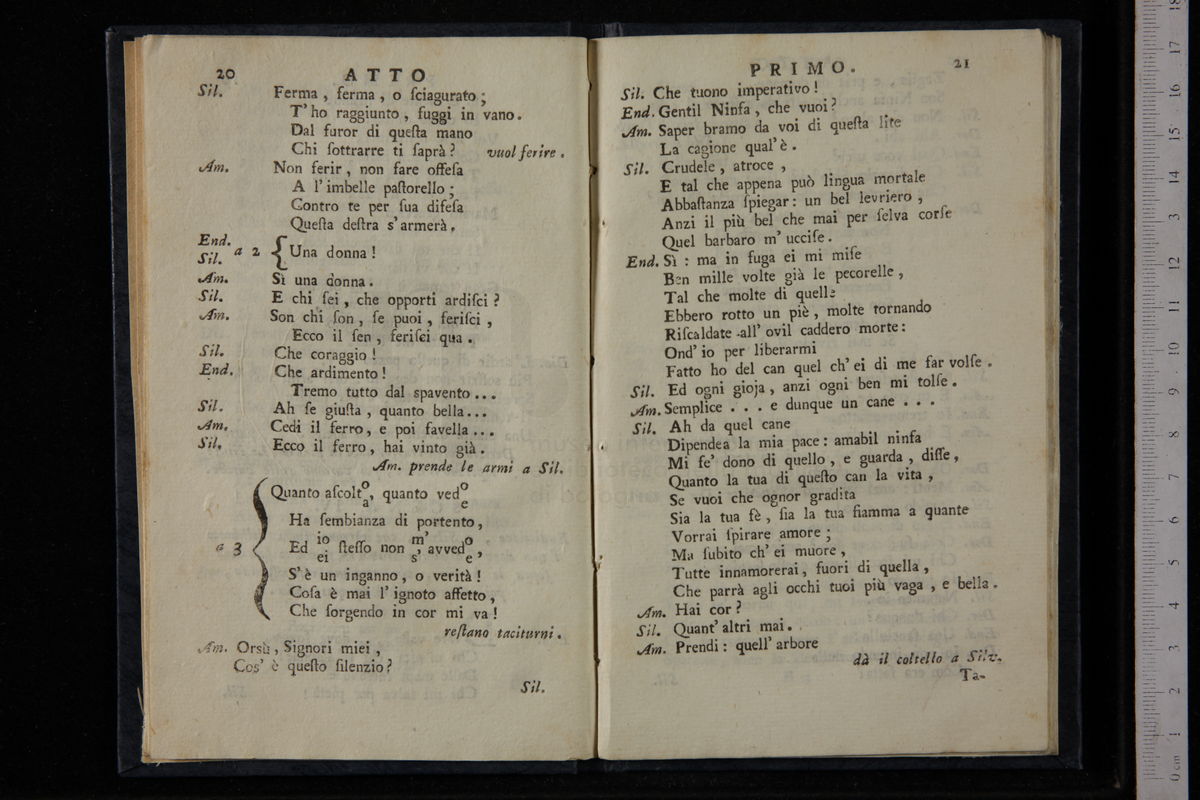 20 ATTO
Sil. Ferma , ferma , o ſciagurato ;
T' ho raggiunto , fuggi in vano .
Dal furor di queſta mano
Chi ſottrarre ti ſaprà ? vuol ferire .
Am. Non ferir , non fare offeſa
A l' imbelle paſtorello ;
Contro te per ſua difeſa
Queſta deſtra s' armerà .
End.
Sil. a 2 { Una donna !
Am. Sì una donna .
Sil. E chi ſei , che opporti ardiſci ?
Am. Son chi ſon , ſe puoi , feriſci ,
Ecco il ſen , feriſci qua .
Sil. Che coraggio !
End. Che ardimento !
Tremo tutto dal spavento ...
Sil. Ah ſe giuſta , quanto bella ...
Am. Cedi il ferro , e poi favella ...
Sil. Ecco il ferro , hai vinto già .
Am. prende le armi a Sil.
Quanto aſcolt o/a , quanto ved o/e
Ha ſembianza di portento ,
a 3 { Ed io/ei ſteſſo non m'/s' avved o/e ,
S' è un inganno , o verità !
Coſa è mai l' ignoto affetto ,
Che ſorgendo in cor mi va !
reſtano taciturni .
Am. Orsù , Signori miei ,
Cos' è queſto ſilenzio ?
Sil.
PRIMO . 21
Sil. Che tuono imperativo !
End. Gentil Ninfa , che vuoi ?
Am. Saper bramo da voi di queſta lite
La cagione qual' è .
Sil. Crudele , atroce ,
E tal che appena può lingua mortale
Abbaſtanza ſpiegar : un bel levriero ,
Anzi il più bel che mai per ſelva corſe
Quel barbaro m' ucciſe .
End. Sì : ma in fuga ei mi miſe
Ben mille volte già le pecorelle ,
Tal che molte di quelle
Ebbero rotto un piè , molte tornando
Riſcaldate all' ovil caddero morte :
Ond' io per liberarmi
Fatto ho del can quel ch' ei di me far volſe .
Sil. Ed ogni gioja , anzi ogni ben mi tolſe .
Am. Semplice . . . e dunque un cane . . .
Sil. Ah da quel cane
Dipendea la mia pace : amabil ninfa
Mi fe' dono di quello , e guarda , diſſe ,
Quanto la tua di queſto can la vita ,
Se vuoi che ognor gradita
Sia la tua fè , ſia la tua fiamma a quante
Vorrai ſpirare amore ;
Ma ſubito ch' ei muore ,
Tutte innamorerai , fuori di quella ,
Che parrà agli occhi tuoi più vaga , e bella .
Am. Hai cor ?
Sil. Quant' altri mai .
Am. Prendi : quell' arbore
dà il coltello a Silv.
Ta-